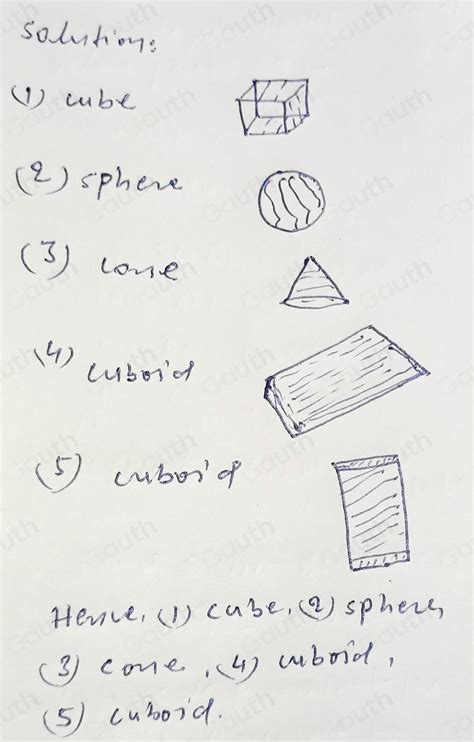 Solution:
(1) cube
(2) sphere
(3) cone
(4) cuboid
(5) cuboid
Hence, (1) cube, (2) sphere,
(3) cone, (4) cuboid,
(5) cuboid.